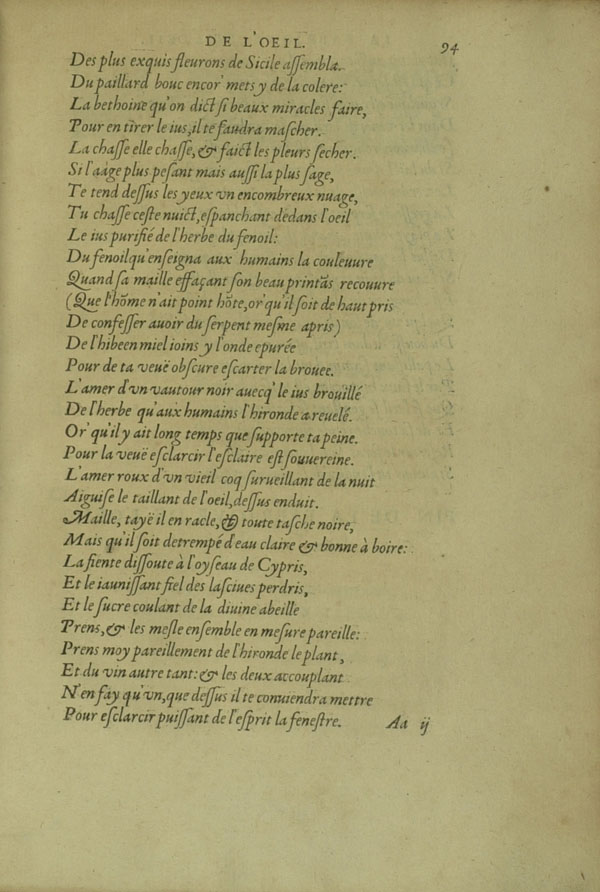 DE L'OEIL.
94
Des plus exquis fleurons de Sicile aſſembla.
Du paillard bouc encor' mets y de la colere:
La bethoine qu'on dict ſi beaux miracles faire,
Pour en tirer le ius, il te faudra maſcher.
La chaſſe elle chaſſe, & faict les pleurs ſecher.
Si l'aage plus peſant mais auſſi la plus ſage,
Te tend deſſus les yeux vn encombreux nuage,
Tu chaſſe ceſte nuict, eſpanchant dedans l'oeil
Le ius purifié de l'herbe du fenoil:
Du fenoil qu'enſeigna aux humains la couleuure
Quand ſa maille effaçant ſon beau printās recouure
(Que l'hōme n'ait point hōte, or' qu'il ſoit de haut pris
De confeſſer auoir du ſerpent meſme apris)
De l'hibeen miel ioins y l'onde epurée
Pour de ta veuë obſcure eſcarter la brouee.
L'amer d'vn vautour noir auecq' le ius brouillé
De l'herbe qu'aux humains l'hironde a reuelé.
Or' qu'il y ait long temps que ſupporte ta peine.
Pour la veuë eſclarcir l'eſclaire eſt ſouuereine.
L'amer roux d'vn vieil coq ſurueillant de la nuit
Aiguiſe le taillant de l'oeil, deſſus enduit.
Maille, tayë il en racle, & toute taſche noire,
Mais qu'il ſoit detrempé d'eau claire & bonne à boire:
La fiente diſſoute à l'oyſeau de Cypris,
Et le iauniſſant fiel des laſciues perdris,
Et le ſucre coulant de la diuine abeille
Prens, & les meſle enſemble en meſure pareille:
Prens moy pareillement de l'hironde le plant,
Et du vin autre tant: & les deux accouplant
N'en fay qu'vn, que deſſus il te conuiendra mettre
Pour eſclarcir puiſſant de l'eſprit la feneſtre.
Aa ij